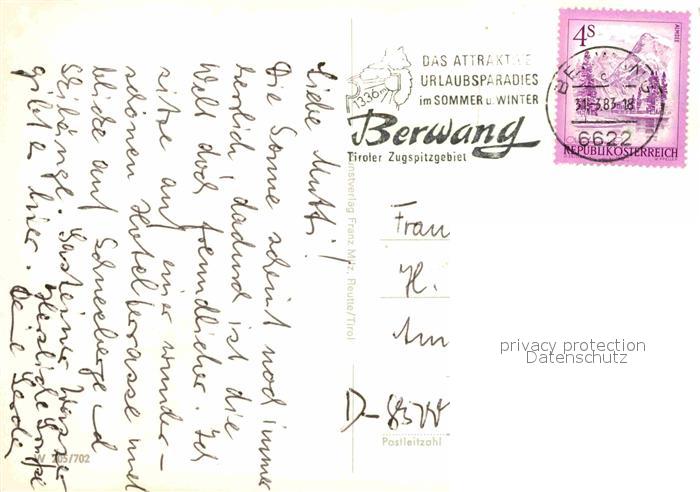 Liebe Mutti!
Die Sonne scheint noch immer
herrlich, dadurch ist die
Welt doch freundlicher. Ich
sitze auf einer wunder-
schönen Hotelterrasse und
blicke auf Schneeberge und
Skihänge. Gasteiner Wasser
gibt es hier. Herzliche Grüße
Deine
DAS ATTRAKTIVE
URLAUBSPARADIES
im SOMMER u. WINTER
1336m
Berwang
Tiroler Zugspitzgebiet
4S
ALMSEE
31.3.83-18
6622
REPUBLIK ÖSTERREICH
Kunstverlag Franz Milz, Reutte/Tirol
Frau
H.
Am
D-
Postleitzahl
W 205/702
privacy protection
Datenschutz